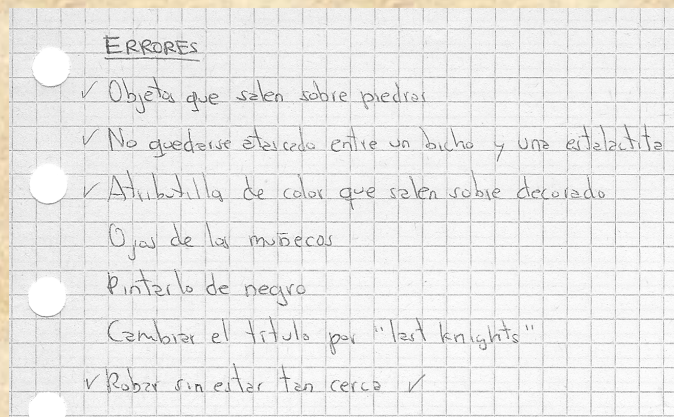 ERRORES
✓ Objetos que salen sobre piedras
✓ No quedarse atascado entre un bicho y una estalactita
✓ Atributillos de color que salen sobre decorado
Ojos de los muñecos
Pintarlo de negro
Cambiar el título por "last knights"
✓ Robar sin estar tan cerca ✓